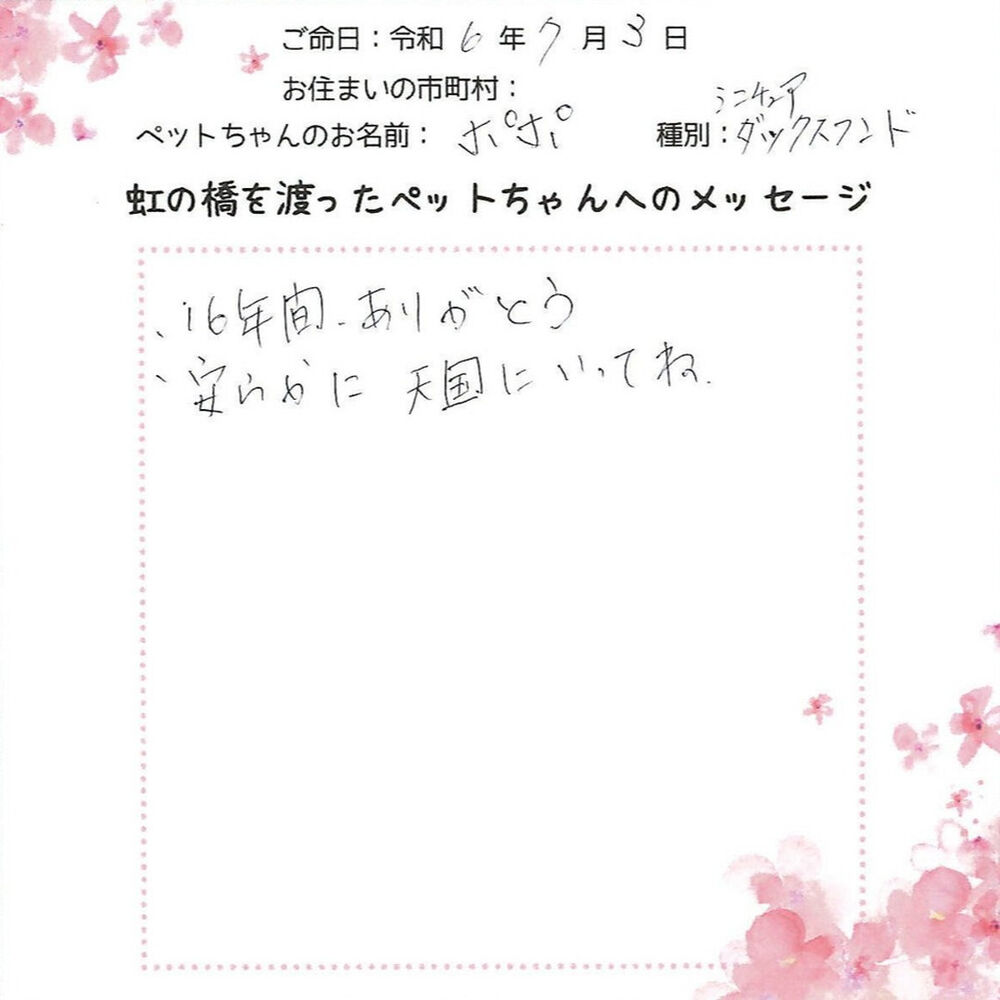 ご命日：令和 6 年 7 月 3 日
お住まいの市町村：
ペットちゃんのお名前： ポポ 種別：ミニチュアダックスフンド
虹の橋を渡ったペットちゃんへのメッセージ
、16年間、ありがとう
、安らかに 天国にいってね。